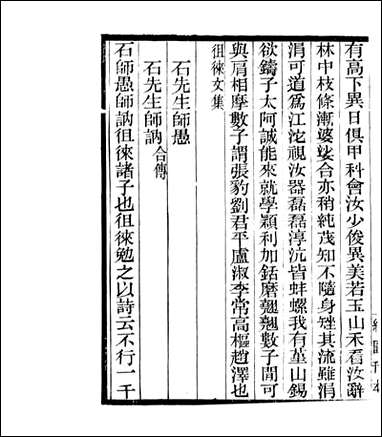 有高下異日俱甲科會汝少俊異美若玉山禾看汝辭
林中枝條漸婆娑合亦稍純茂知不隨身矬其流雖涓
涓可道爲江沱視汝器磊磊渟沆皆蚌螺我有堇山錫
欲鑄子太阿誠能來就學穎利加銛磨翹翹數子閒可
與肩相摩數子謂張豹劉君平盧淑李常高樞趙澤也
徂徠文集
石先生師愚
石先生師訥合傳
石師愚師訥徂徠諸子也徂徠勉之以詩云不行一千